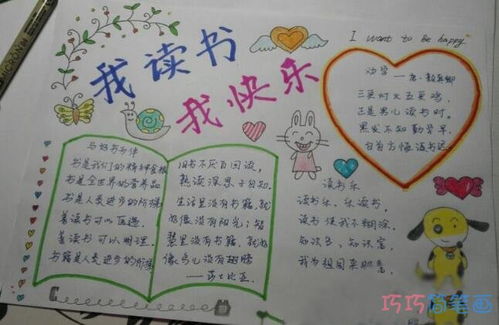 我读书
我快乐
I want to be happy
劝学 —唐·颜真卿
三更灯火五更鸡,
正是男儿读书时。
黑发不知勤学早,
白首方悔读书迟。
与好书为伴
书是我们的精神食粮
书是全世界的营养品
书是人类进步的阶梯
善读书可以医愚
善读书可以明理
书籍是人类进步的阶梯
旧书不厌百回读,
熟读深思子自知。
生活里没有书籍,就
好像没有阳光;智
慧里没有书籍,就好
像鸟儿没有翅膀
——莎士比亚
读书乐
读书乐,乐读书,
读书使我不糊涂。
知识多,知识富,
我为祖国来服务
巧巧简笔画